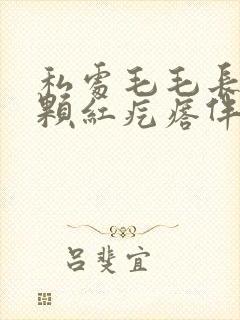 私處毛毛長
顆紅疙瘩伴
呂斐宜